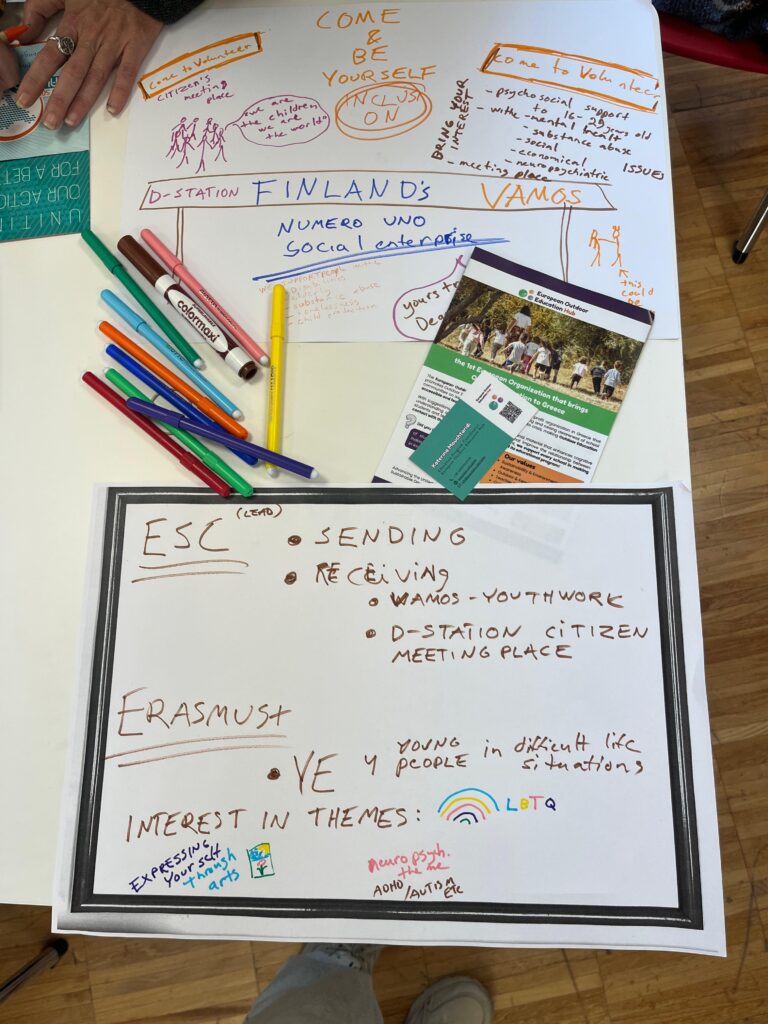 COME
&
BE
YOURSELF
INCLUSI
ON
Come to Volunteer
CITIZEN'S
meeting
place
we are
the children
we are
the world
BRING YOUR
INTEREST
Come to Volunteer
- psychosocial support
to 16-29 years old
with - mental healt
- substance abuse
- social
- economical
- neuropsychiatric
ISSUES
- meeting place
D-STATION FINLAND's VAMOS
NUMERO UNO
Social enterprise
we support people with
substance abuse
child protection
yours
this
could
be
UNITI
OUR ACTIO
FOR A BET
colormaxi
European Outdoor
Education Hub
the 1st European Organization that brings
to Greece
Our values
ESC (LEAD)
• SENDING
• RECEIVING
• VAMOS - YOUTHWORK
• D-STATION CITIZEN
MEETING PLACE
ERASMUS+
• YE 4 YOUNG PEOPLE in difficult life situations
INTEREST IN THEMES: LBTQ
EXPRESSING
Yourself
through
arts
neuropsych.
theme
ADHD
/AUTISM
ETC